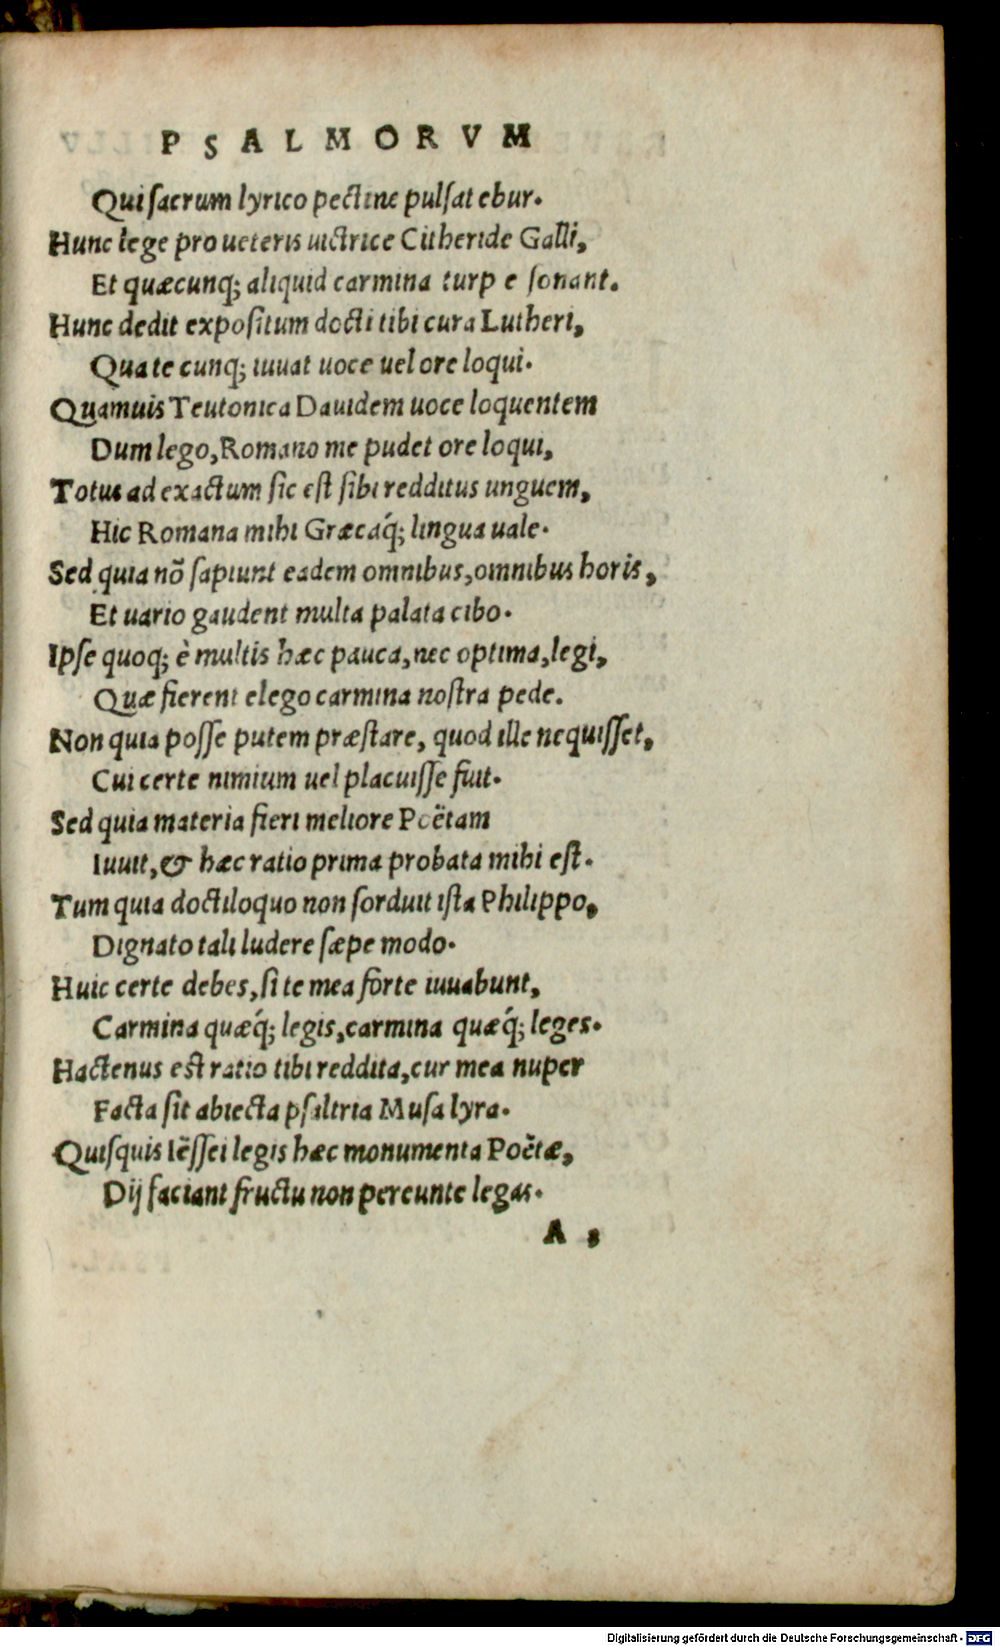 PSALMORVM
Qui sacrum lyrico pectine pulsat ebur.
Hunc lege pro ueteris uictrice Citheride Galli,
Et quæcunq; aliquid carmina turp e sonant.
Hunc dedit expositum docti tibi cura Lutheri,
Qua te cunq; iuuat uoce uel ore loqui.
Quamuis Teutonica Dauidem uoce loquentem
Dum lego, Romano me pudet ore loqui,
Totus ad exactum sic est sibi redditus unguem,
Hic Romana mihi Græcáq; lingua uale.
Sed quia nõ sapiunt eadem omnibus, omnibus horis,
Et uario gaudent multa palata cibo.
Ipse quoq; è multis hæc pauca, nec optima, legi,
Quæ fierent elego carmina nostra pede.
Non quia posse putem præstare, quod ille nequisset,
Cui certe nimium uel placuisse fuit.
Sed quia materia fieri meliore Poëtam
Iuuit, & hæc ratio prima probata mihi est.
Tum quia doctiloquo non sorduit ista Philippo,
Dignato tali ludere sæpe modo.
Huic certe debes, si te mea forte iuuabunt,
Carmina quæq́; legis, carmina quæq́; leges.
Hactenus est ratio tibi reddita, cur mea nuper
Facta sit abiecta psaltria Musa lyra.
Quisquis Iëssei legis hæc monumenta Poëtæ,
Dij faciant fructu non pereunte legas.
A 3
Digitalisierung gefördert durch die Deutsche Forschungsgemeinschaft - DFG